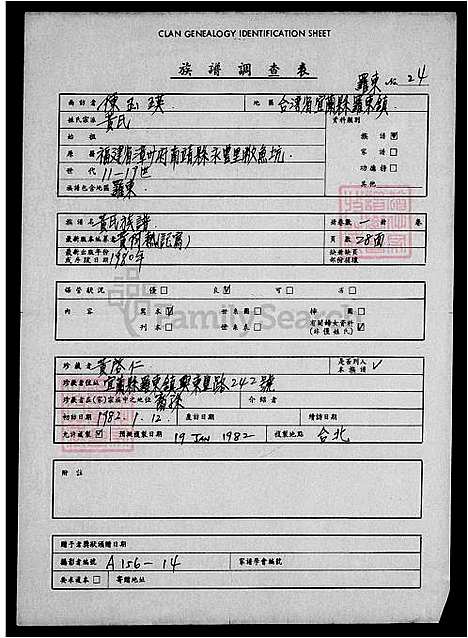 CLAN GENEALOGY IDENTIFICATION SHEET
族譜調查表
羅東 No 24
尚訪者 陳玉瑛 地區 台灣省宜蘭縣羅東鎮
姓氏宗派 黃氏 資料類別
始祖 族譜
原籍 福建省漳州府南靖縣永豐里 坑 家譜
世代 11-19世 功德榜
族譜包含地區 羅東 其他
族譜名 黃氏族譜 冊卷數 一 冊 卷
最新版本編纂者 黃 頁數 28面
最新出版年份 1980年 缺卷缺頁
或手錄日期 部份補填
保管狀況 優 良 可 劣
內容 寫本 世系圖 排
刊本 世系表 有關婦女資料
(非僅姓氏)
珍藏者 黃啓仁 是否列入
本族譜
珍藏者住址 宜蘭縣羅東鎮興東里路242號
珍藏者在(家)宗族中之地位 裔孫 介紹者
初訪日期 1982.1.12. 覆訪日期 續訪日期
允許複製 預擬複製日期 19 JAN 1982 複製地點 台北
附註
贈予者獎狀頒贈日期
攝影者編號 A156-14 家譜學會編號
要求還本 寄贈地址
FamilySearch